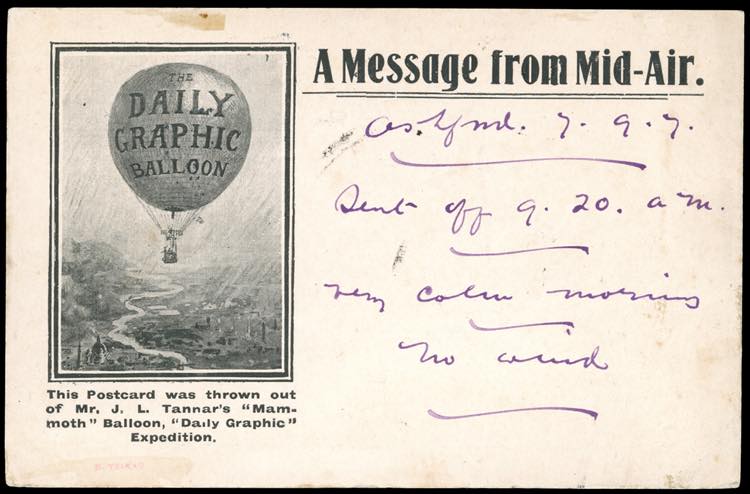 THE
DAILY
GRAPHIC
BALLOON
This Postcard was thrown out
of Mr. J. L. Tannar's "Mam-
moth" Balloon, "Daily Graphic"
Expedition.
A Message from Mid-Air.
Ashford. 7. 9. 7.
Sent off 9. 20. a m.
very calm morning
no wind